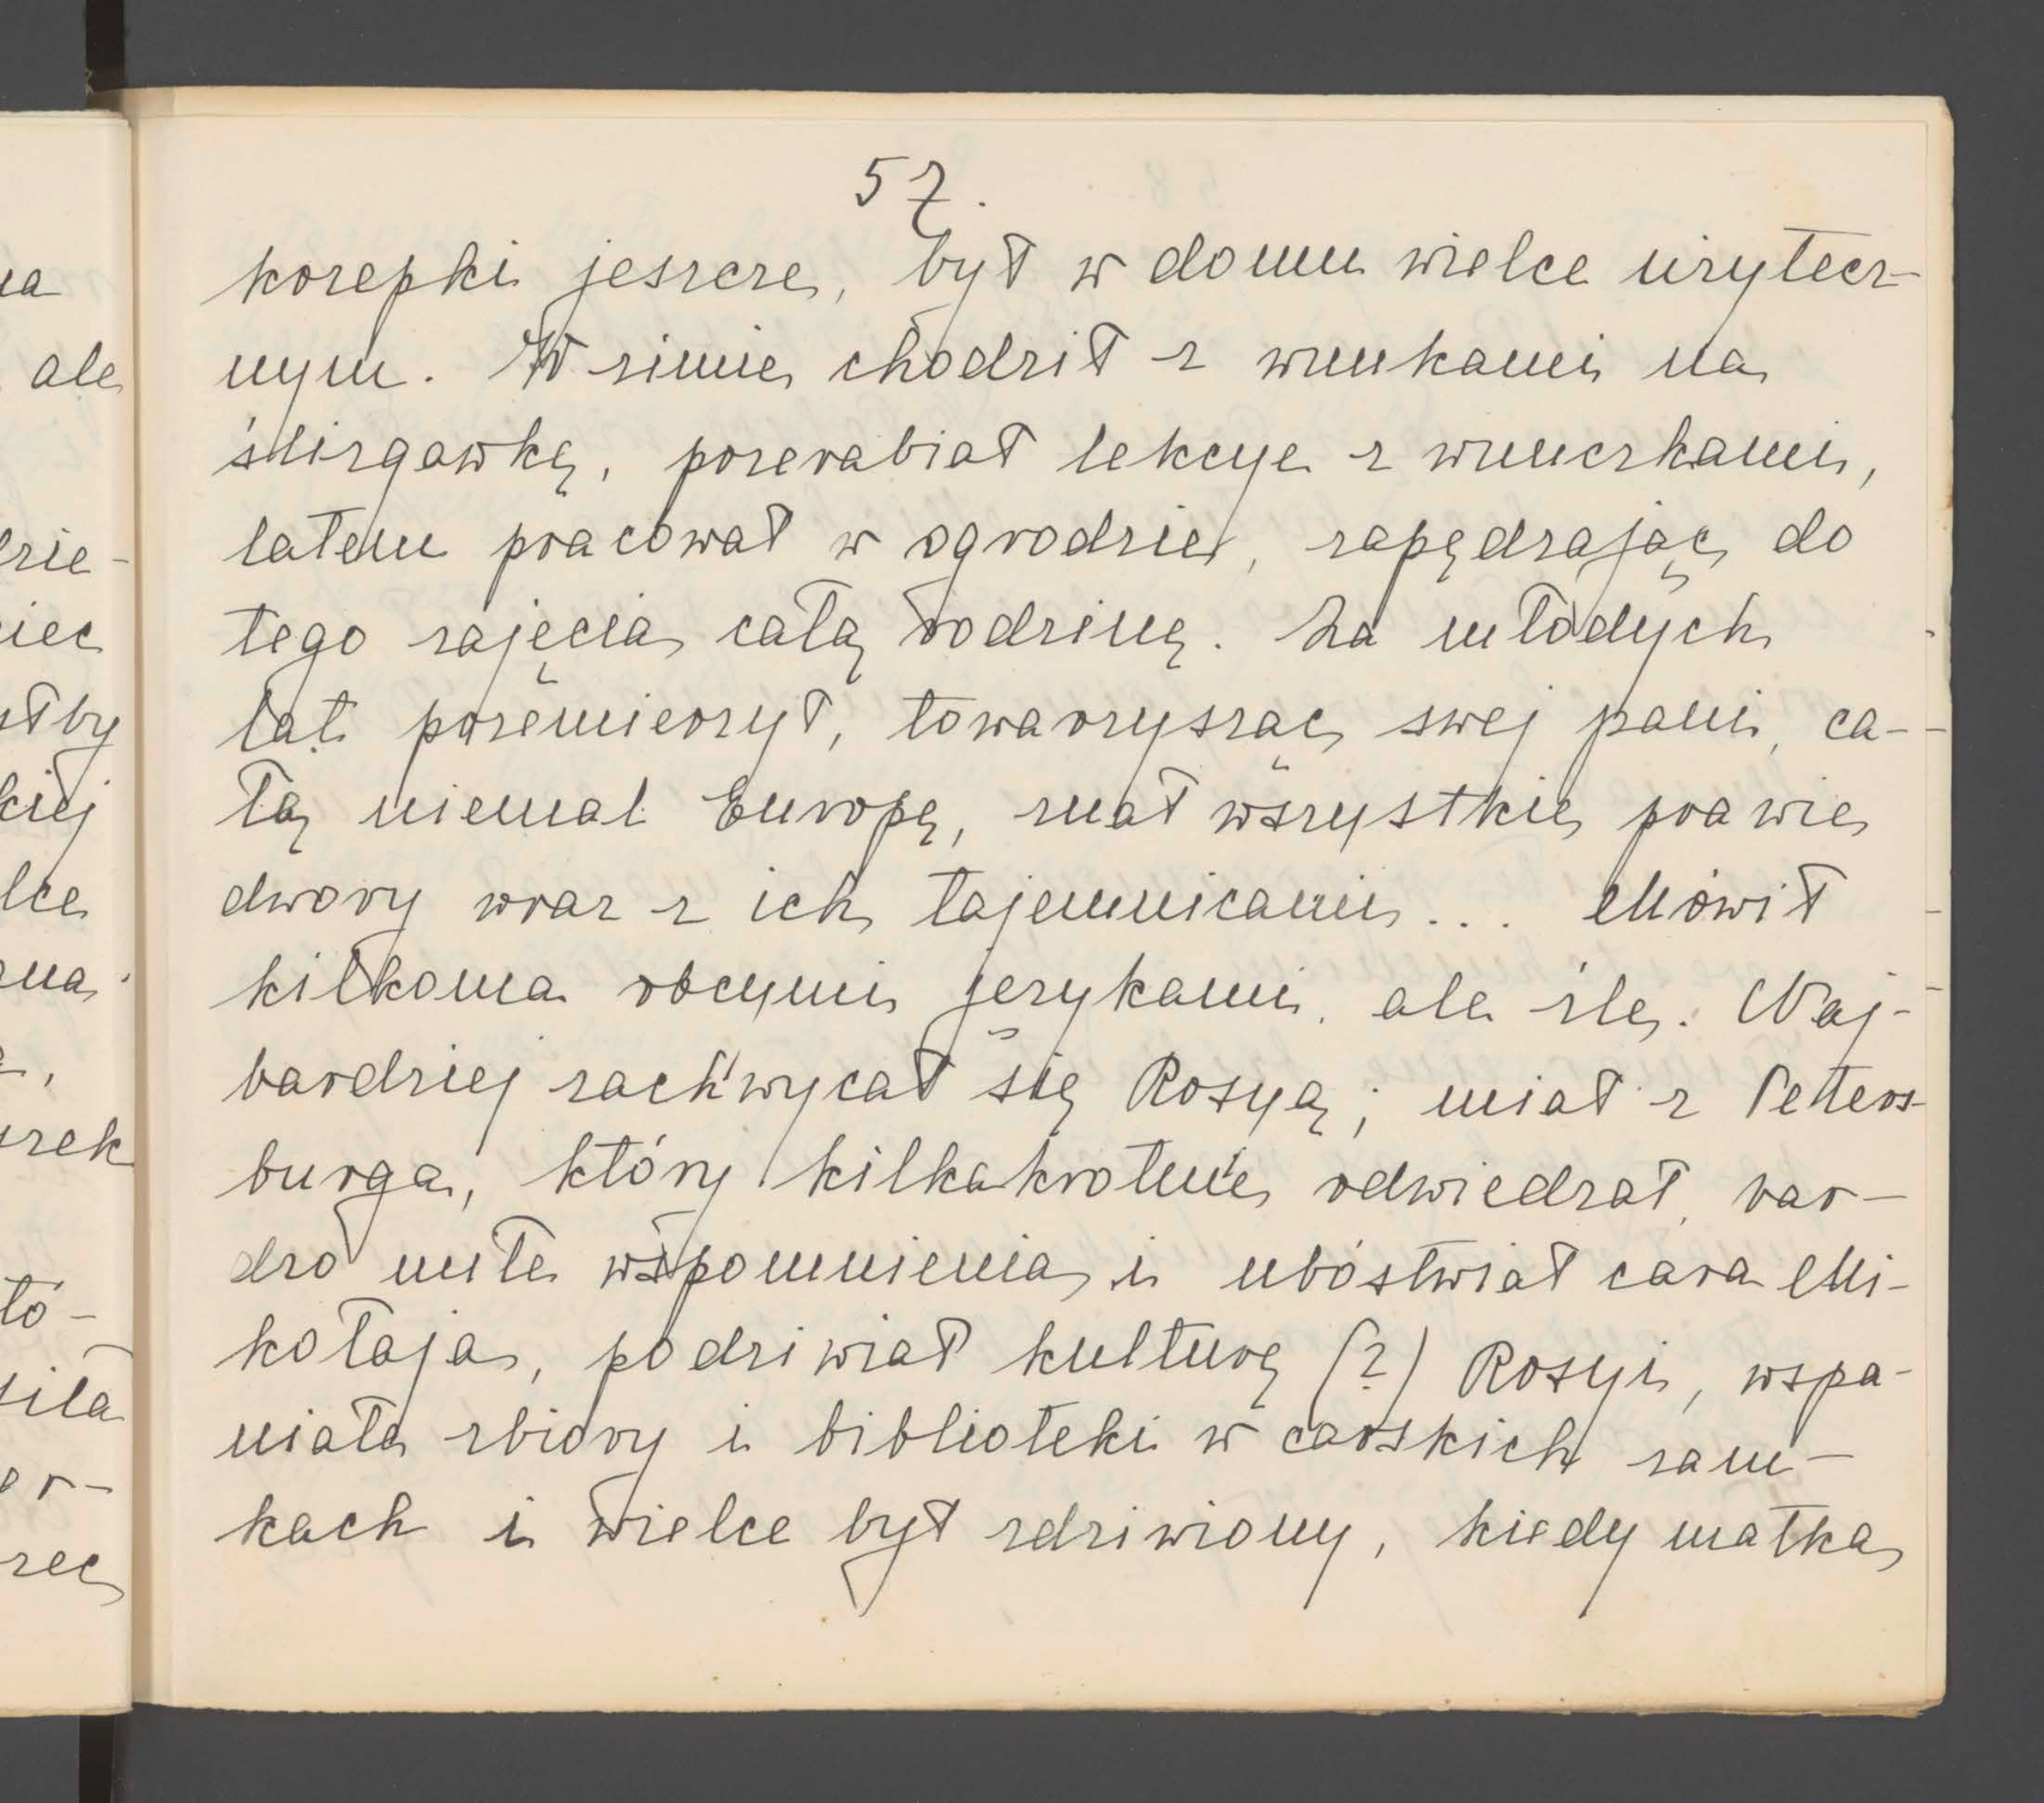 57.
krzepki jeszcze, był w domu wielce użytecz-
nym. W zimie chodził z wnukami na
ślizgawkę, przerabiał lekcye z wnuczkami,
latem pracował w ogrodzie, zapędzając do
tego zajęcia całą rodzinę. Za młodych
lat przemierzył, towarzysząc swej pani, ca-
łą niemal Europę, znał wszystkie prawie
dwory wraz z ich tajemnicami... Mówił
kilkoma obcymi językami, ale źle. Naj-
bardziej zachwycał się Rosyą; miał z Peters-
burga, który kilkakrotnie odwiedzał, bar-
dzo miłe wspomnienia i ubóstwiał cara Mi-
kołaja, podziwiał kulturę (?) Rosyi, wspa-
niałe zbiory i biblioteki w carskich zam-
kach i wielce był zdziwiony, kiedy matka
na
ale
dzie-
stby
kiej
lce
rzek
tó-
siła